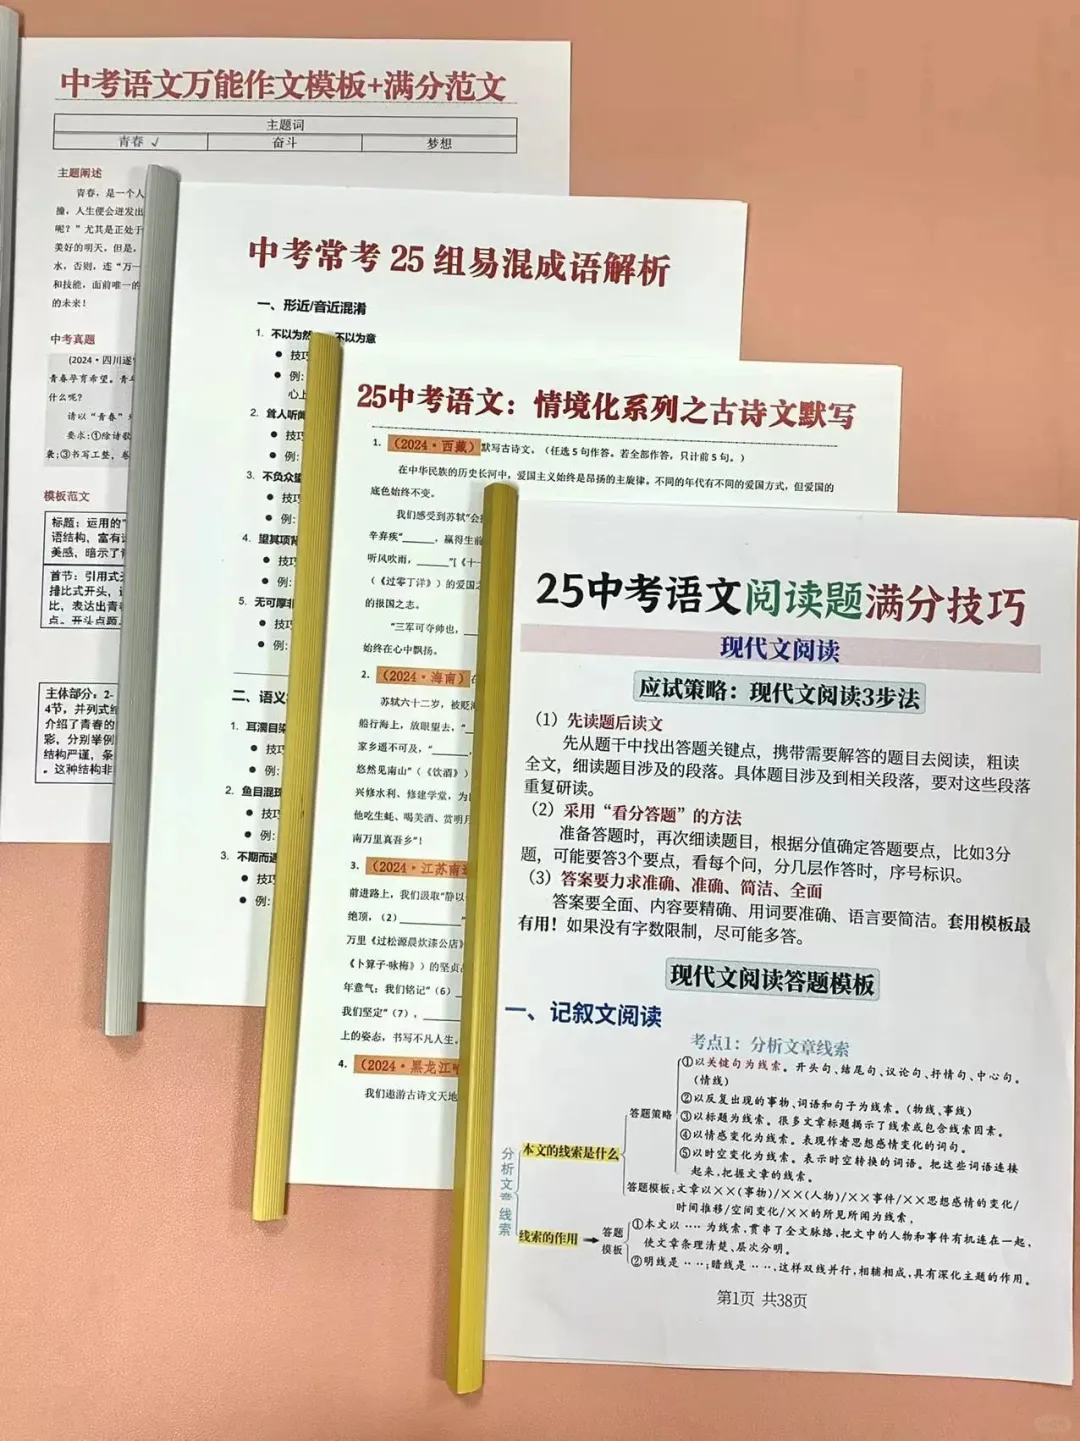 中考语文万能作文模板+满分范文
主题词
青春 √ 奋斗 梦想
主题阐述
青春，是一个人
撞，人生便会迸发出
呢？”尤其是正处于
美好的明天，但是，
水，否则，连“万一
和技能，面前唯一的
的未来！
中考真题
(2024·四川遂
青春孕育希望。青
什么呢？
请以“青春”
要求:①除诗歌
袭;③书写工整，卷
模板范文
标题：运用的“
语结构、富有
美感、暗示了青
首节：引用式开
排比式开头，
比，表达出青春
点。开头点题
主体部分：2-
4节，并列式结
介绍了青春的
彩，分别举例
结构严谨，条
。这种结构非
中考常考 25 组易混成语解析
一、形近/音近混淆
1. 不以为然 不以为意
技巧
例：
心上
2. 耸人听闻
技巧
例：
3. 不负众望
技巧
例：
4. 望其项背
技巧
例：
5. 无可厚非
技巧
例：
二、语义
1. 耳濡目染
技巧
例：
2. 鱼目混珠
技巧
例：
3. 不期而遇
技巧
例：
25中考语文：情境化系列之古诗文默写
1. （2024·西藏）默写古诗文。（任选 5 句作答。若全部作答，只计前 5 句。）
在中华民族的历史长河中，爱国主义始终是昂扬的主旋律。不同的年代有不同的爱国方式，但爱国的
底色始终不变。
我们感受到苏轼“会挽
辛弃疾“______，赢得生前
听风吹雨，______”[《十一
（《过零丁洋》）的爱国之
的报国之志。
“三军可夺帅也，
始终在心中飘扬。
2. （2024·海南）在
苏轼六十二岁，被贬海
船行海上，放眼望去，“
家乡遥不可及，“______，
悠然见南山”（《饮酒》）
兴修水利、修建学堂，为
他吃生蚝、喝美酒、赏明月
南万里真吾乡”！
3. （2024·江苏南
前进路上，我们汲取“静以
绝顶，（2）__________”
万里《过松源晨炊漆公店》
《卜算子·咏梅》）的坚贞
年意气：我们铭记“（6）
我们坚定“（7），
上的姿态，书写不凡人生。
4. （2024·黑龙江
我们遨游古诗文天地
25中考语文阅读题满分技巧
现代文阅读
应试策略：现代文阅读3步法
（1）先读题后读文
先从题干中找出答题关键点，携带需要解答的题目去阅读，粗读
全文，细读题目涉及的段落。具体题目涉及到相关段落，要对这些段落
重复研读。
（2）采用“看分答题”的方法
准备答题时，再次细读题目，根据分值确定答题要点，比如3分
题，可能要答3个要点，看每个问，分几层作答时，序号标识。
（3）答案要力求准确、准确、简洁、全面
答案要全面、内容要精确、用词要准确、语言要简洁。套用模板最
有用！如果没有字数限制，尽可能多答。
现代文阅读答题模板
一、记叙文阅读
考点1：分析文章线索
分析文章线索
本文的线索是什么
答题策略
①以关键句为线索。开头句、结尾句、议论句、抒情句、中心句。
(情线)
②以反复出现的事物、词语和句子为线索。(物线、事线)
③以标题为线索。很多文章标题揭示了线索或包含线索因素。
④以情感变化为线索。表现作者思想感情变化的词句。
⑤以时空变化为线索。表示时空转换的词语。把这些词语连接
起来，把握文章的线索。
答题模板:文章以××(事物)/××(人物)/××事件/××思想感情的变化/
时间推移/空间变化/××的所见所闻为线索，
线索的作用
答题
模板
①本文以 ···· 为线索，贯串了全文脉络，把文中的人物和事件有机连在一起，
使文章条理清楚、层次分明。
②明线是 ····;暗线是 ····,这样双线并行，相辅相成，具有深化主题的作用。
第1页 共38页